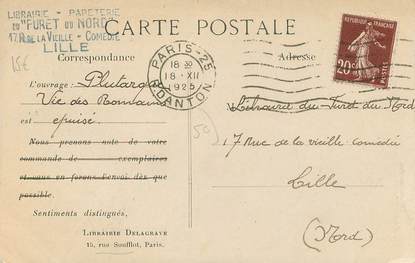 LIBRAIRIE - PAPETERIE
DU "FURET DU NORD"
17, R. DE LA VIEILLE - COMÉDIE
LILLE
15€
CARTE POSTALE
Correspondance
Adresse
PARIS-25
R. DANTON
18 30
18 · XII
1925
RÉPUBLIQUE FRANÇAISE
20c
POSTES
L'ouvrage : Plutarq
Vie des Romains
est épuisé.
Nous prenons note de votre
commande de exemplaires
et vous en ferons l'envoi dès que
possible.
Sentiments distingués,
LIBRAIRIE DELAGRAVE
15, rue Soufflot, Paris.
50
Librairie du Furet du Nord
17 Rue de la vieille comédie
Lille
(Nord)